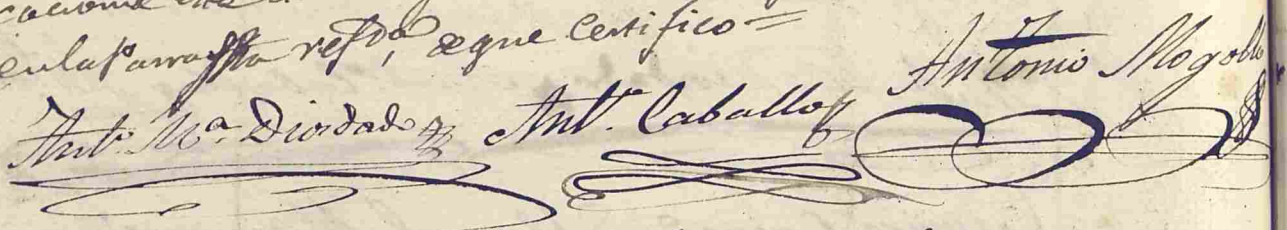 en la Parroqa refda, de que Certifico=
Anto. Ma. Diosdado Anto. Caballo Antonio Mogollo